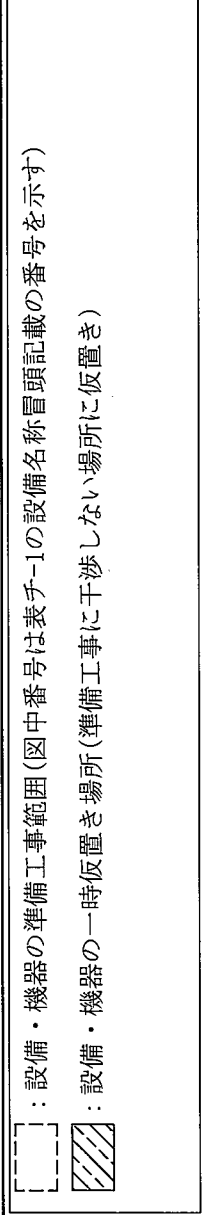 ：設備・機器の準備工事範囲(図中番号は表チ-1の設備名称冒頭記載の番号を示す)
：設備・機器の一時仮置き場所(準備工事に干渉しない場所に仮置き)